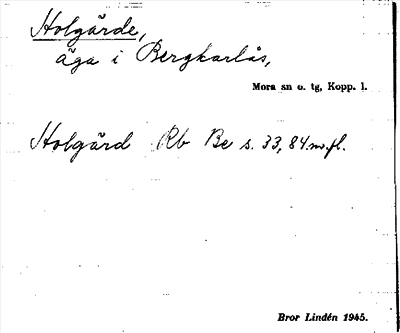 Holgärde,
äga i Bergkarlås,
Mora sn o. tg, Kopp. l.
Holgärd Rb Be s. 33, 84 m.fl.
Bror Lindén 1945.